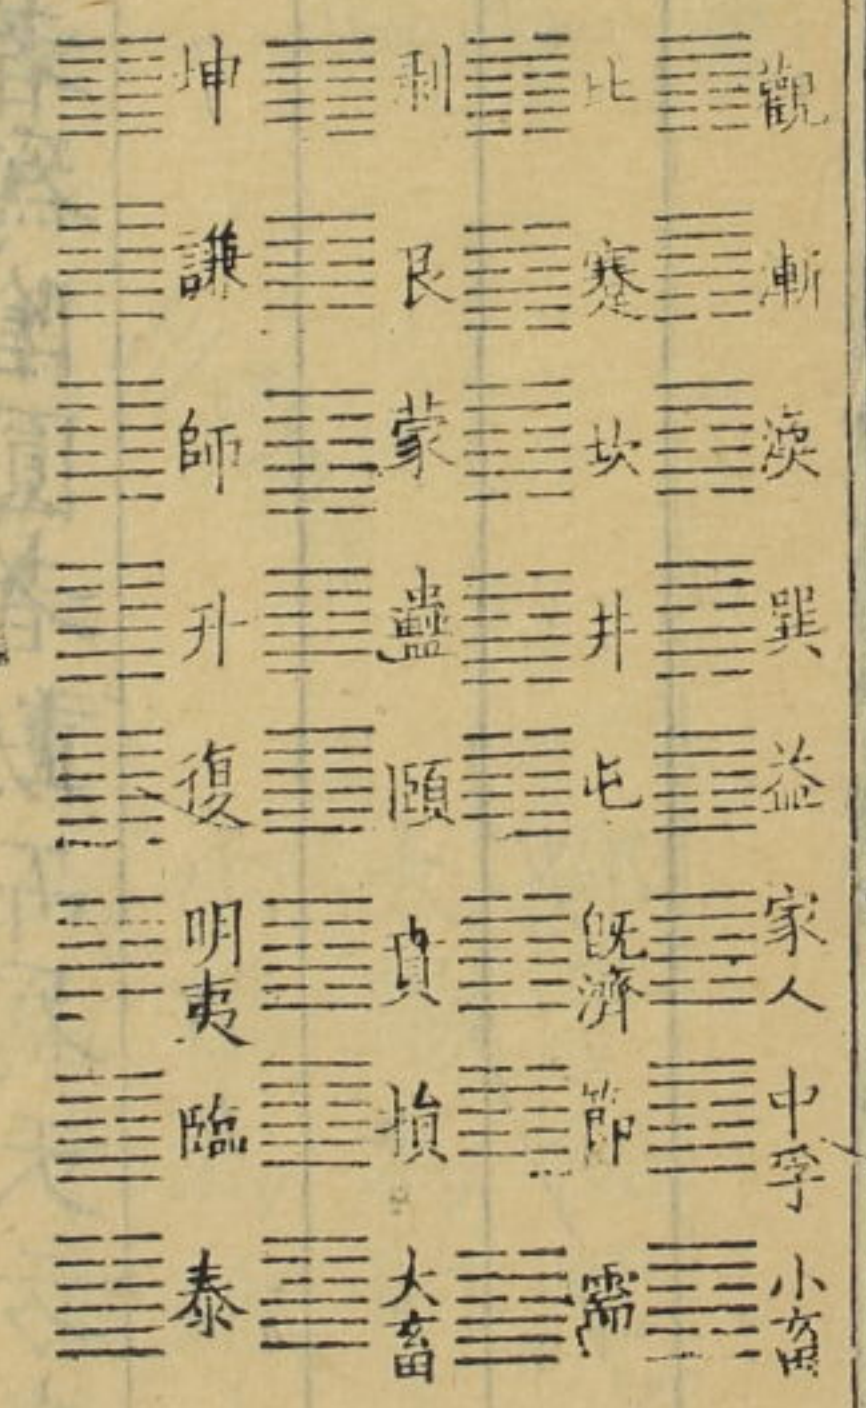 觀 漸 渙 巽 益 家人 中孚 小畜
比 蹇 坎 井 屯 旣濟 節 需
剥 艮 蒙 蠱 頤 賁 損 大畜
坤 謙 師 升 復 明夷 臨 泰